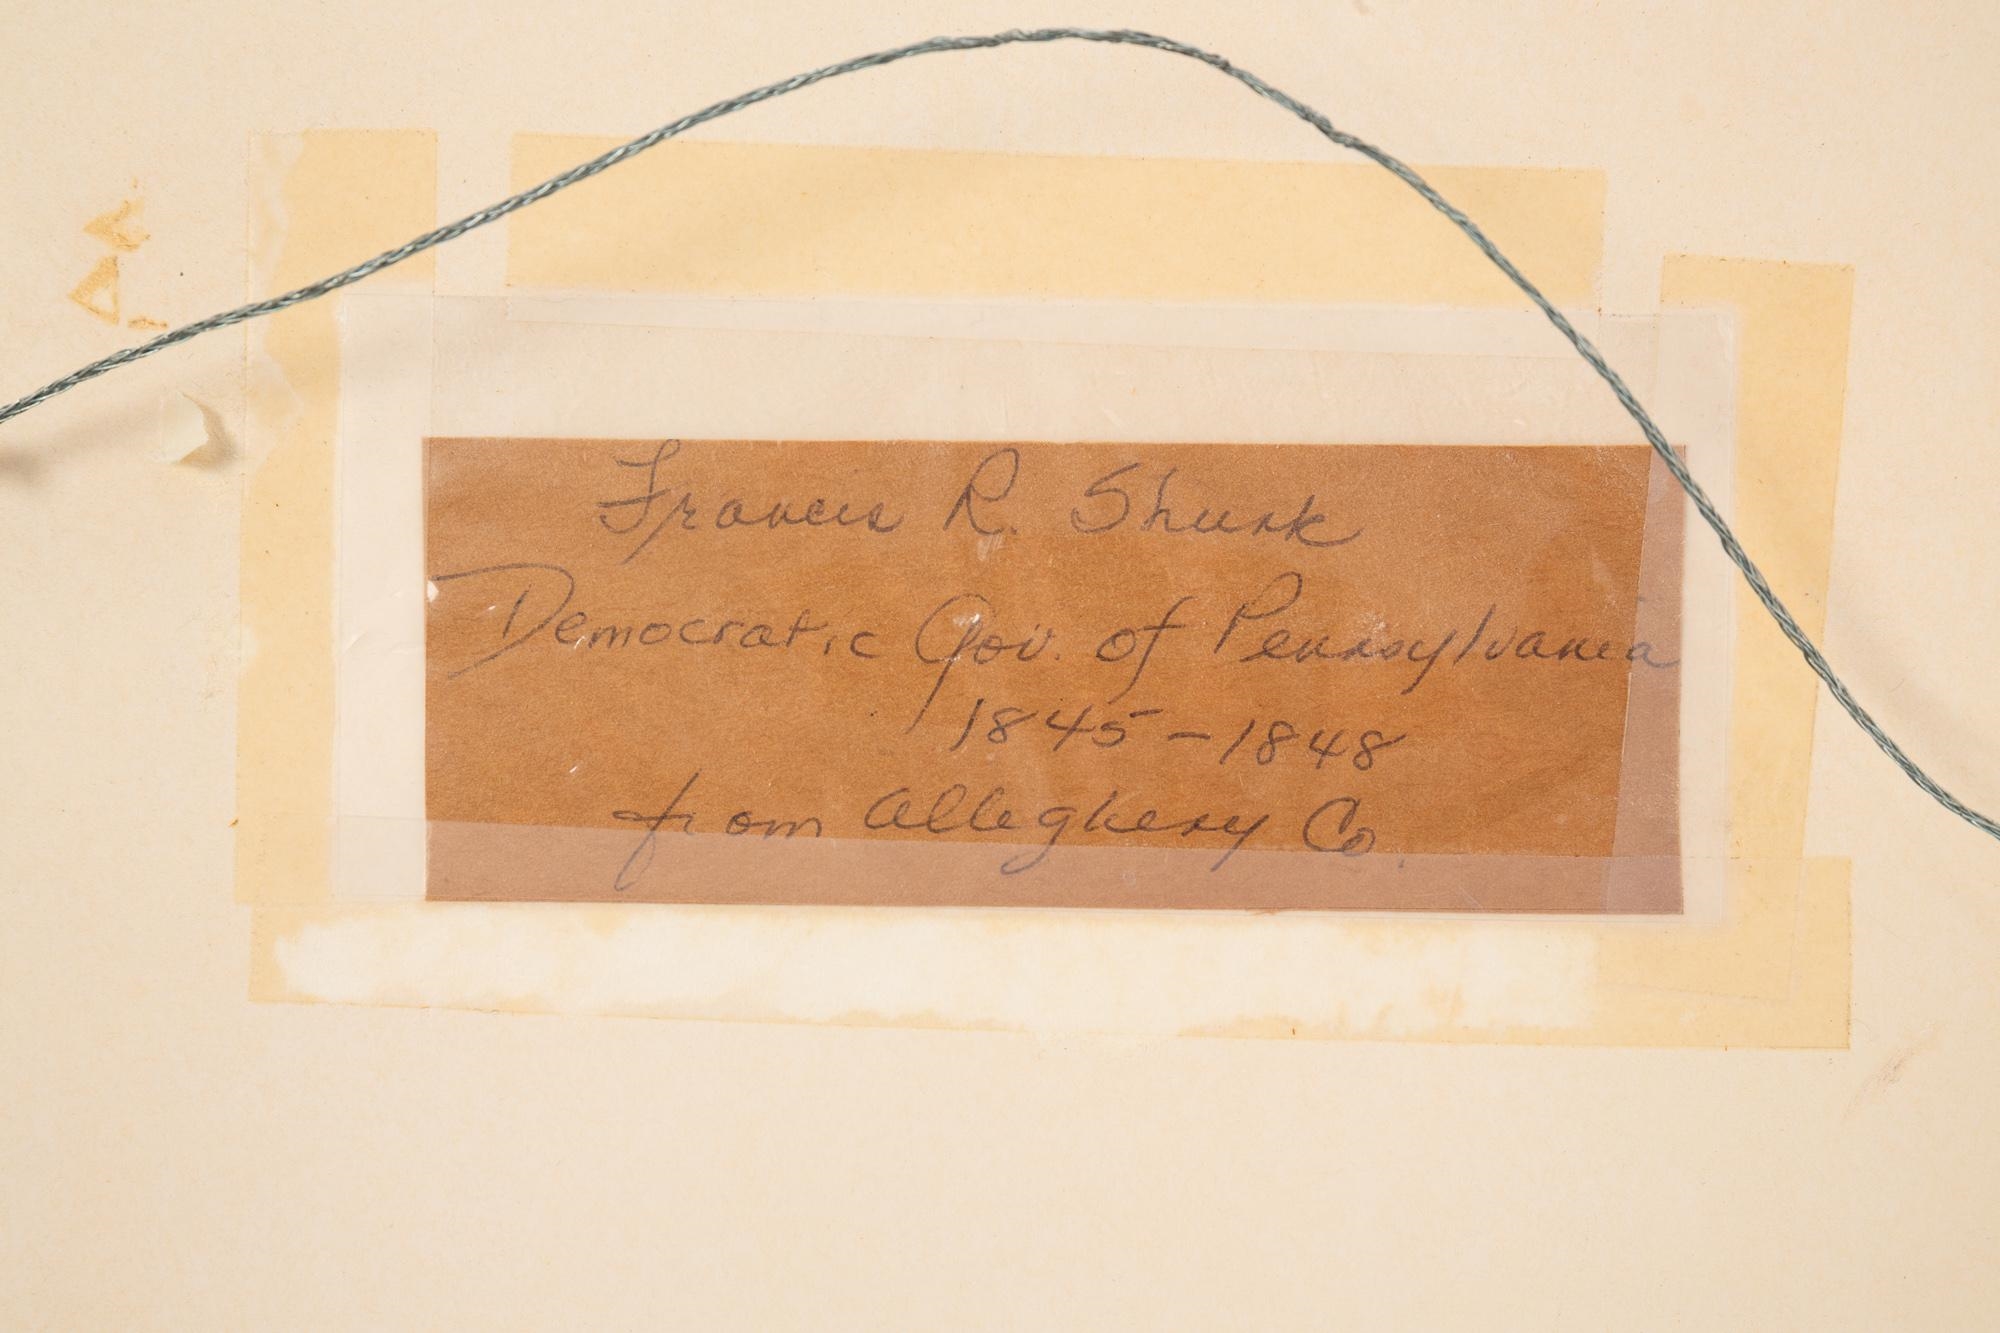 Francis R. Shunk
Democratic Gov. of Pennsylvania
1845-1848
from Allegheny Co.